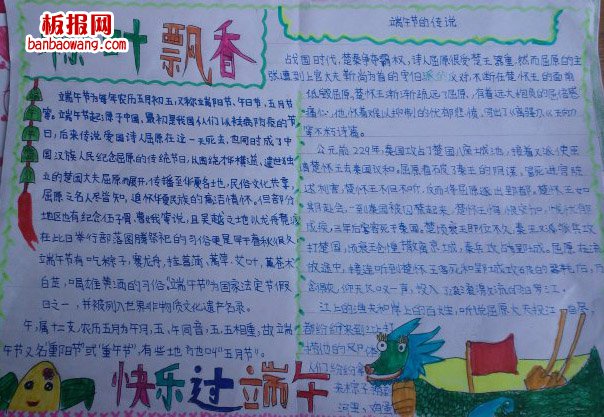 板报网
banbaowang.com
叶飘香
端午节为每年农历五月初五,又称端阳节、午日节、五月节
等。端午节起源于中国,最初是我国人们以祛病防疫的节
日,后来传说爱国诗人屈原在这一天死去,也同时成了中
国汉族人民纪念屈原的传统节日,以围绕才华横溢、遗世独
立的楚国大夫屈原而展开,传播至华夏各地,民俗文化共享,
屈原之名人尽皆知,追怀华夏民族的高洁情怀。但部分
地区也有纪念伍子胥、曹娥等说,且吴越之地以龙舟竞渡
在此日举行部落图腾祭祀的习俗更是早于春秋很久
端午节有吃粽子,赛龙舟,挂菖蒲、蒿草、艾叶,薰苍术
白芷,喝雄黄酒的习俗。“端午节”为国家法定节假
日之一,并被列入世界非物质文化遗产名录。
午,属十二支,农历五月为午月,五、午同音,五、五相重,故端
午节又名“重阳节”或“重午节”,有些地方也叫“五月节”。
快乐过端午
端午节的传说
战国时代,楚秦争夺霸权,诗人屈原很受楚王器重,然而屈原的主
张遭到上官大夫靳尚为首的
反对,不断在楚怀王的面前
诋毁屈原,楚怀王渐渐疏远了屈原,有着远大抱负的屈原倍感
痛心,他怀着难以抑制的忧郁悲愤,写出了《离骚》《天问》
等不朽诗篇。
公元前229年,秦国攻占了楚国八座城池,接着又派使
楚怀王去秦国议和。屈原看破了秦王的阴谋,冒死进宫
述利害,楚怀王不但不听,反而将屈原逐出郢都。楚怀王
期赴会,一到秦国被囚禁起来,楚怀王悔
成疾,三年后客死于秦国。楚顷衰王即位不久,秦王又派兵攻
打楚国,顷衰王仓惶撤离京城,秦兵攻占郢城。屈原在流
放途中,接连听到楚怀王客死和郢城攻破的噩耗后,万
仰天长叹一声,投入了滚滚
江上的渔夫和岸上的百姓,听说屈原大夫投江
都纷纷来到江上